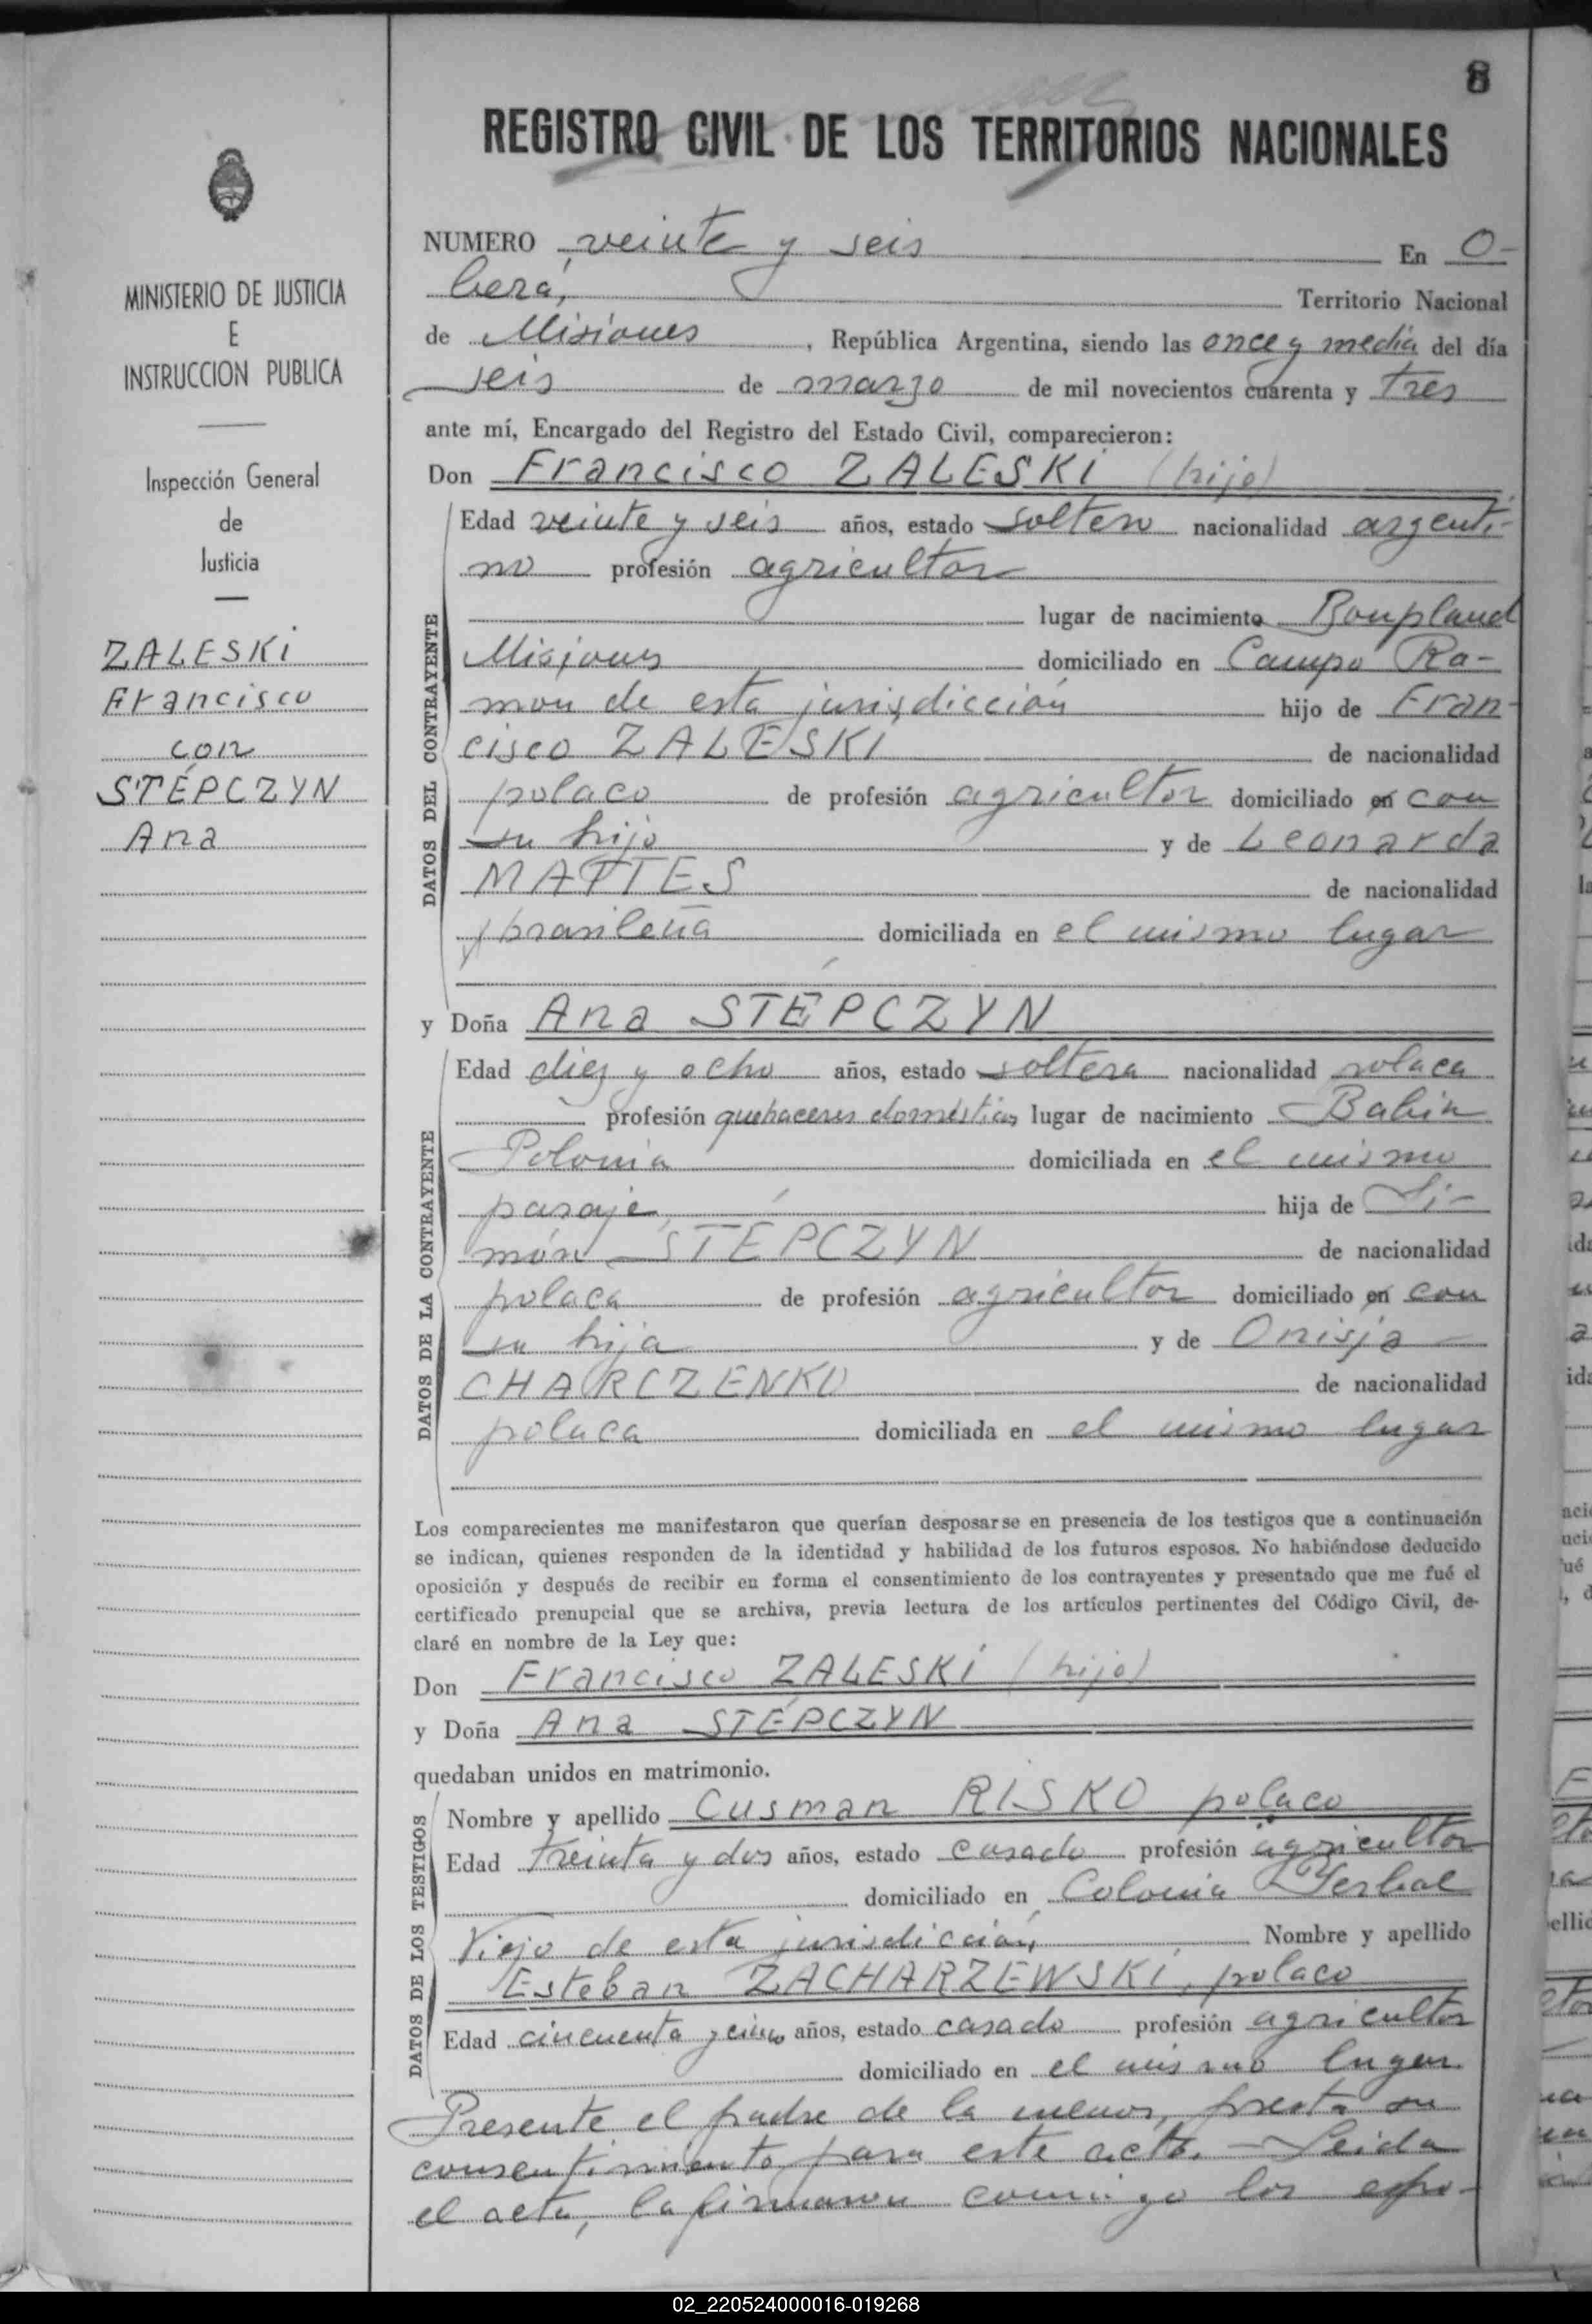 8
REGISTRO CIVIL DE LOS TERRITORIOS NACIONALES
MINISTERIO DE JUSTICIA
E
INSTRUCCION PUBLICA
Inspección General
de
Justicia
ZALESKI
Francisco
con
STÉPCZYN
Ana
NUMERO veinte y seis En O-
berá, Territorio Nacional
de Misiones, República Argentina, siendo las once y media del día
seis de marzo de mil novecientos cuarenta y tres
ante mí, Encargado del Registro del Estado Civil, comparecieron:
Don Francisco ZALESKI (hijo)
DATOS DEL CONTRAYENTE
Edad veinte y seis años, estado soltero nacionalidad argenti-
no profesión agricultor
lugar de nacimiento Bonpland
Misiones domiciliado en Campo Ra-
mon de esta jurisdicción hijo de Fran-
cisco ZALESKI de nacionalidad
polaco de profesión agricultor domiciliado en con
su hijo y de Leonarda
MATTES de nacionalidad
brasileña domiciliada en el mismo lugar
y Doña Ana STÉPCZYN
DATOS DE LA CONTRAYENTE
Edad diez y ocho años, estado soltera nacionalidad polaca
profesión quehaceres domésticos lugar de nacimiento Babin
Polonia domiciliada en el mismo
paraje, hija de Si-
món STÉPCZYN de nacionalidad
polaca de profesión agricultor domiciliado en con
su hija y de Onisja
CHARCZENKO de nacionalidad
polaca domiciliada en el mismo lugar
Los comparecientes me manifestaron que querían desposarse en presencia de los testigos que a continuación
se indican, quienes responden de la identidad y habilidad de los futuros esposos. No habiéndose deducido
oposición y después de recibir en forma el consentimiento de los contrayentes y presentado que me fué el
certificado prenupcial que se archiva, previa lectura de los artículos pertinentes del Código Civil, de-
claré en nombre de la Ley que:
Don Francisco ZALESKI (hijo)
y Doña Ana STÉPCZYN
quedaban unidos en matrimonio.
DATOS DE LOS TESTIGOS
Nombre y apellido Cusman RISKO polaco
Edad treinta y dos años, estado casado profesión agricultor
domiciliado en Colonia Yerbal
Viejo de esta jurisdicción, Nombre y apellido
Esteban ZACHARZEWSKI, polaco
Edad cincuenta y cinco años, estado casado profesión agricultor
domiciliado en el mismo lugar.
Presente el padre de la menor, presta su
consentimiento para este acto. - Leida
el acta, la firmaron conmigo los espo-
02_220524000016-019268